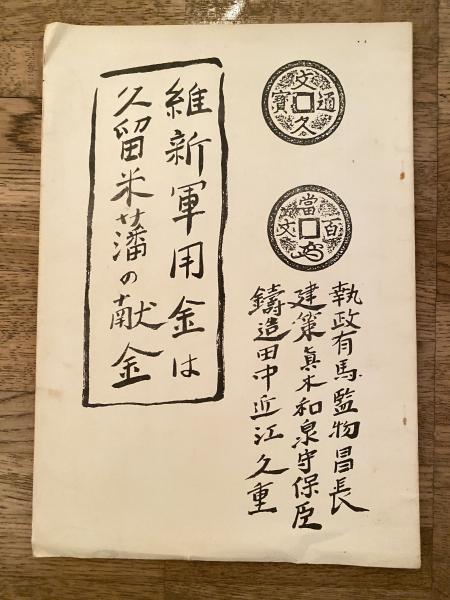 文久通寶
當百文
執政有馬監物昌長
建策眞木和泉守保臣
鑄造田中近江久重
維新軍用金は
久留米藩の献金